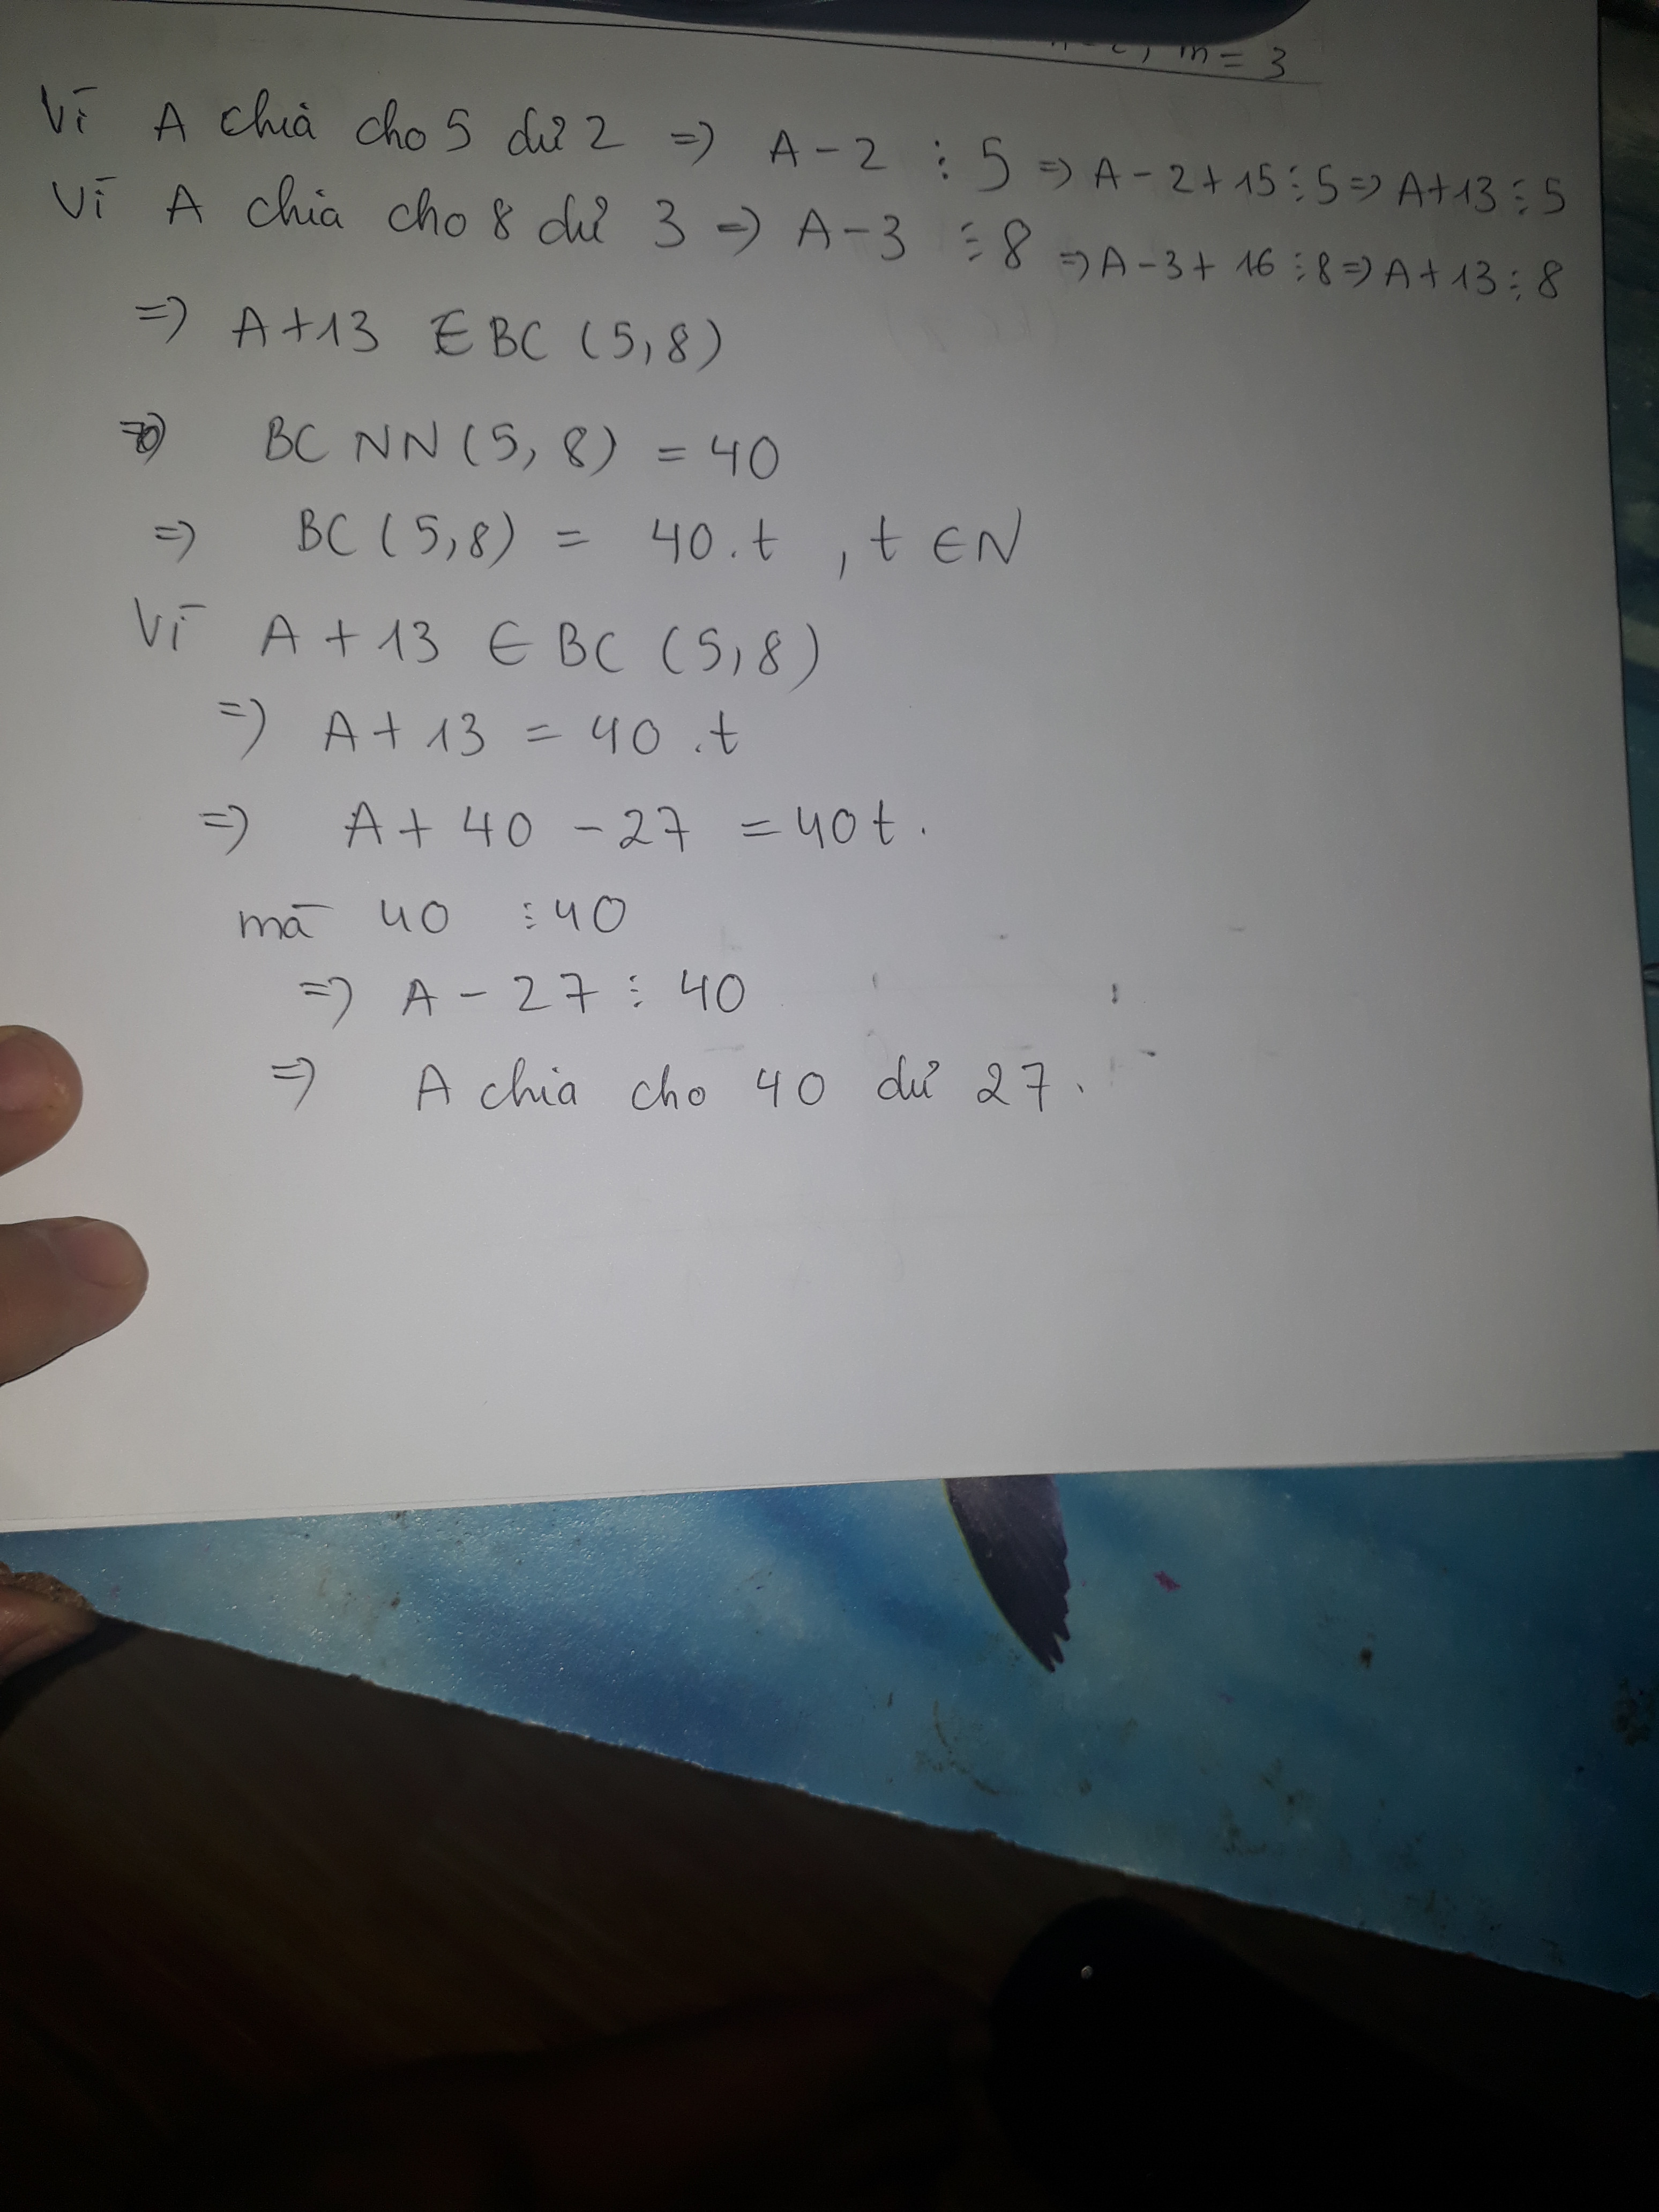 m = 3
Vì A chia cho 5 dư 2 => A - 2 ⋮ 5 => A - 2 + 15 ⋮ 5 => A + 13 ⋮ 5
Vì A chia cho 8 dư 3 => A - 3 ⋮ 8 => A - 3 + 16 ⋮ 8 => A + 13 ⋮ 8
=> A + 13 ∈ BC (5,8)
=> BCNN (5, 8) = 40
=> BC (5,8) = 40.t , t ∈ N
Vì A + 13 ∈ BC (5,8)
=> A + 13 = 40 .t
=> A + 40 - 27 = 40t.
mà 40 ⋮ 40
=> A - 27 ⋮ 40
=> A chia cho 40 dư 27.